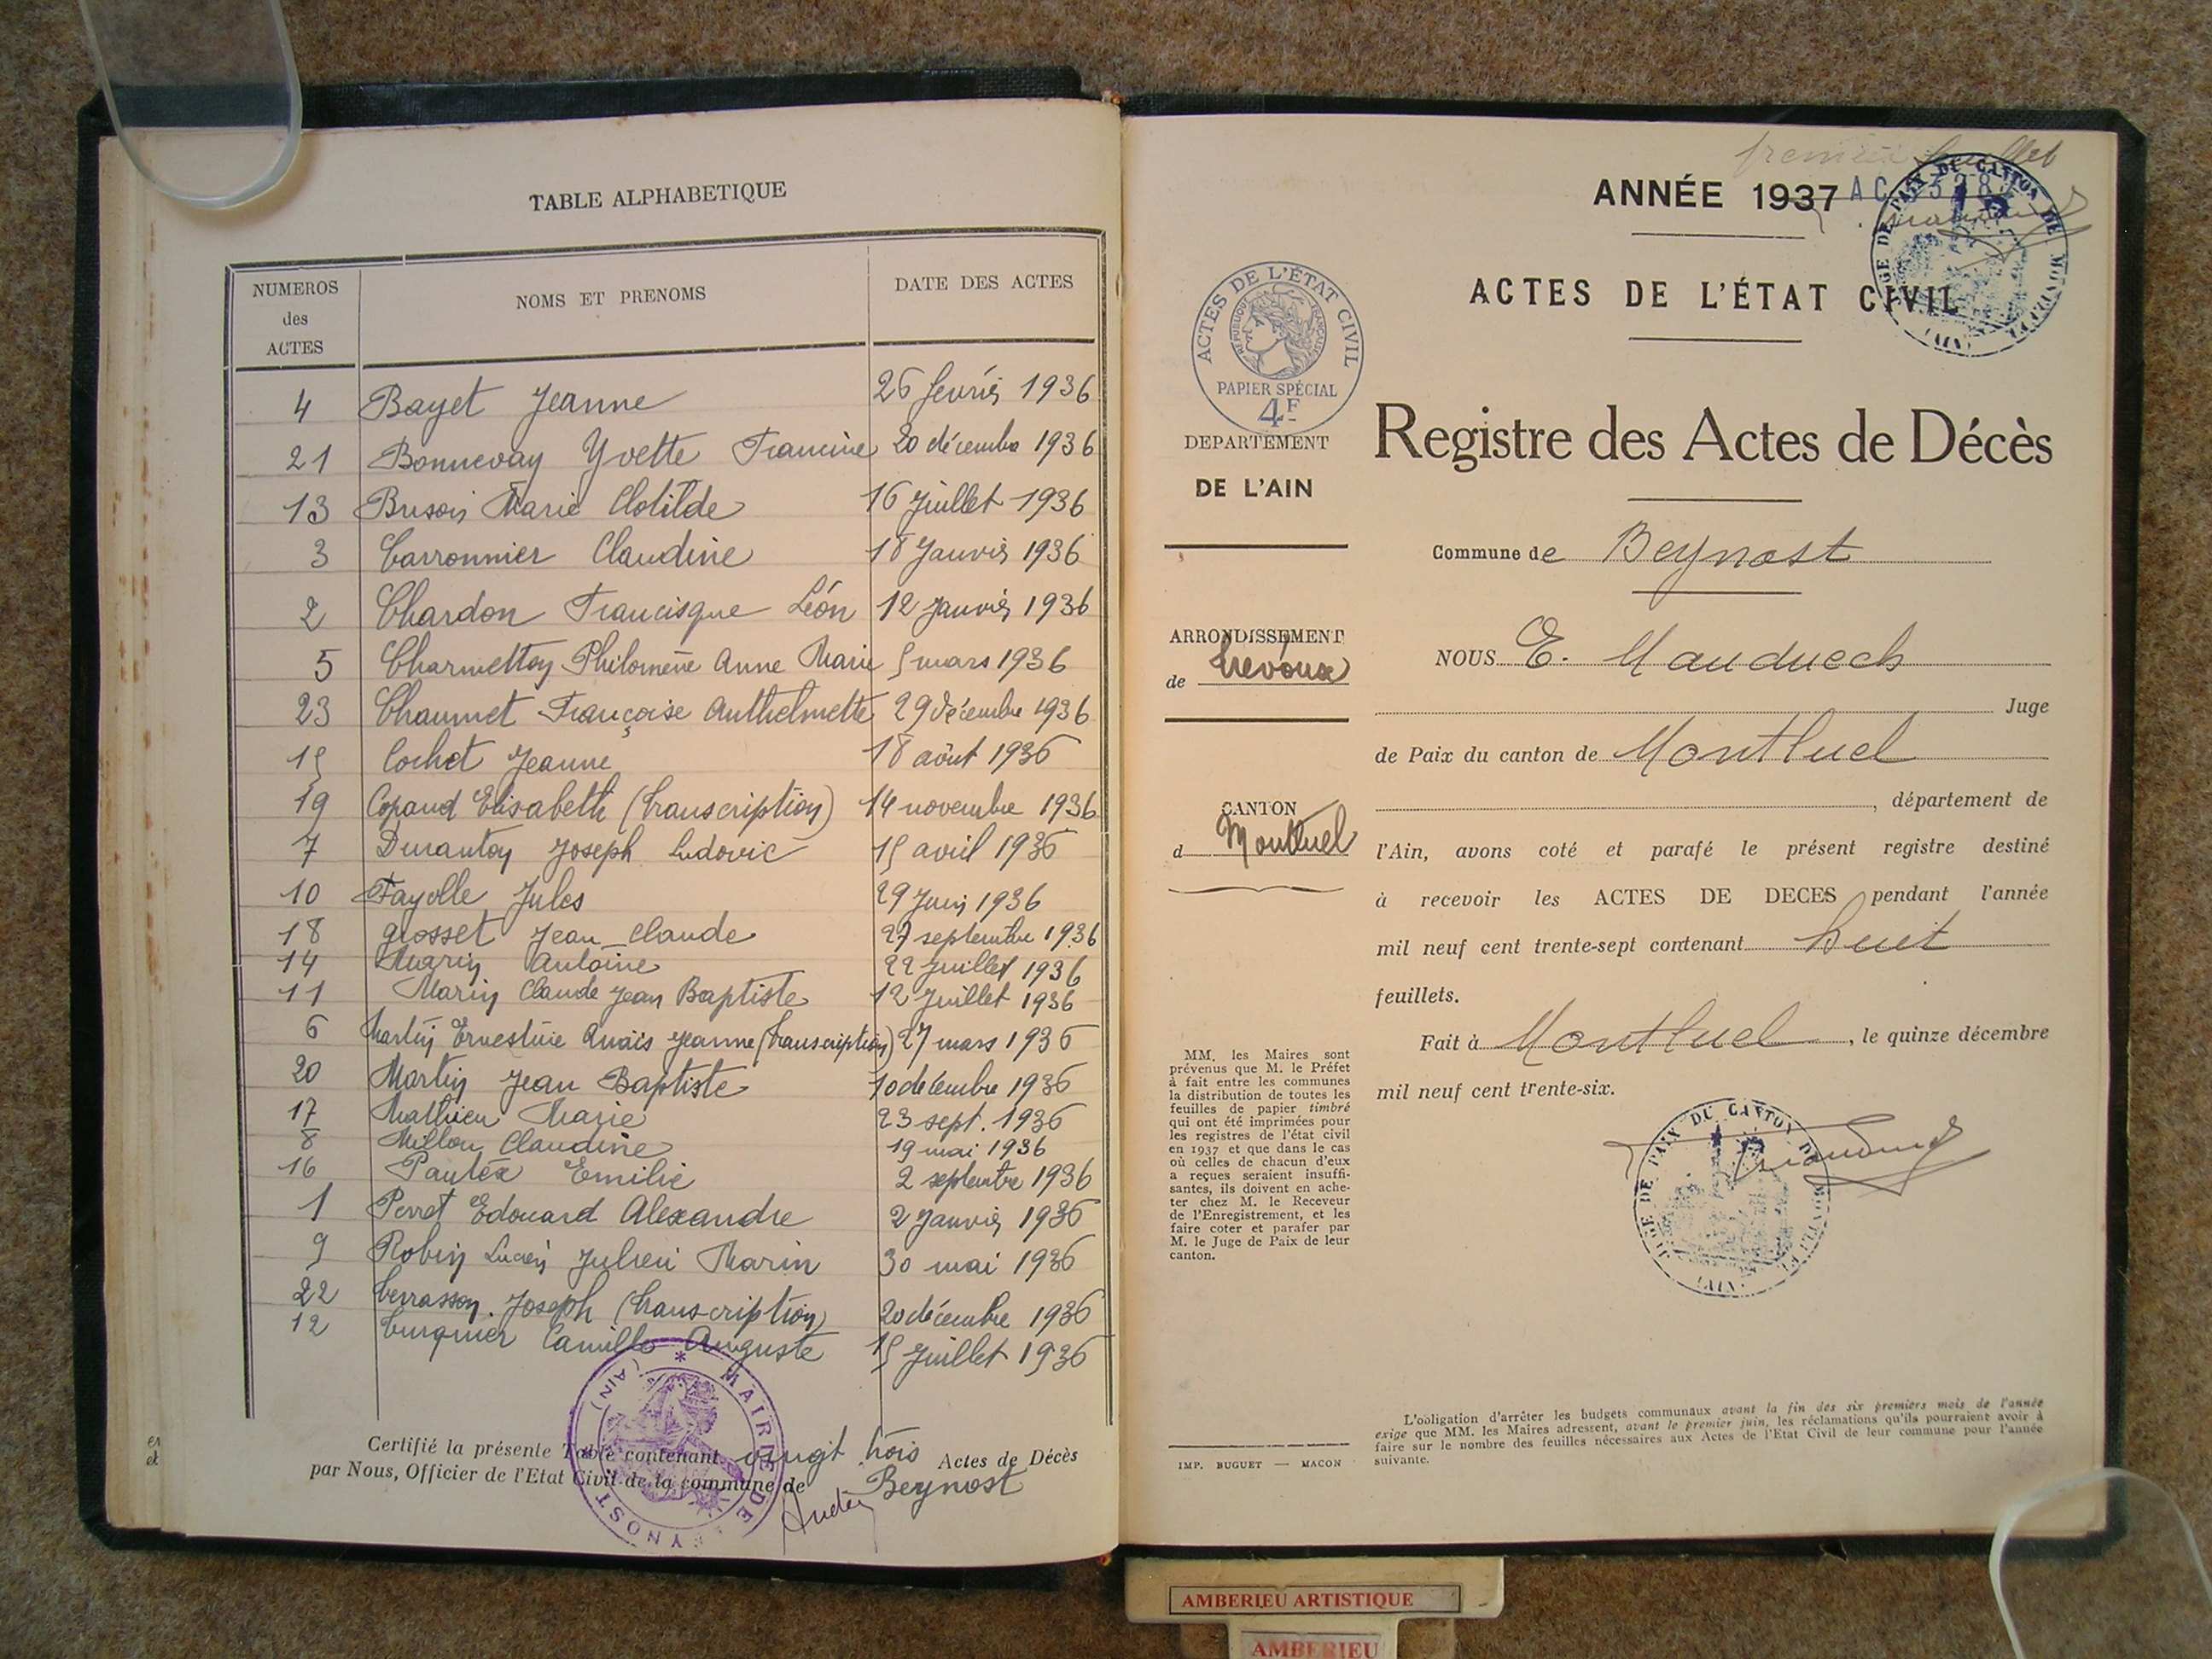 TABLE ALPHABETIQUE
NUMEROS des ACTES
NOMS ET PRENOMS
DATE DES ACTES
4 Bayet Jeanne 26 fevrier 1936
21 Bonnevay Yvette Francine 20 décembre 1936
13 Buson Marie Clotilde 16 Juillet 1936
3 Carronnier Claudine 18 Janvier 1936
2 Chardon Francisque Léon 12 Janvier 1936
5 Charmetton Philomène Anne Marie 5 mars 1936
23 Chaumet Françoise Anthelmette 29 décembre 1936
15 Cochet Jeanne 18 août 1936
19 Copaud Elisabeth (transcription) 14 novembre 1936
7 Duranton Joseph Ludovic 15 avril 1936
10 Fayolle Jules 29 Juin 1936
18 Grosset Jean Claude 27 septembre 1936
14 Marin Antoine 22 Juillet 1936
11 Marin Claude Jean Baptiste 12 Juillet 1936
6 Martin Ernestine Anaïs Jeanne (transcription) 27 mars 1936
20 Martin Jean Baptiste 10 décembre 1936
17 Mathieu Marie 23 sept. 1936
8 Millon Claudine 19 mai 1936
16 Pautex Emilie 2 septembre 1936
1 Perret Edouard Alexandre 2 Janvier 1936
9 Robin Lucien Julien Marin 30 mai 1936
22 Terrasson Joseph (transcription) 20 décembre 1936
12 Turquier Camille Auguste 15 Juillet 1936
Certifié la présente Table contenant vingt trois Actes de Décès
par Nous, Officier de l'Etat Civil de la commune de Beynost
* MAIRIE DE BEYNOST (AIN)
premier feuillet
ANNÉE 1937
ACTES DE L'ÉTAT CIVIL
JUGE DE PAIX DU CANTON DE MONTLUEL (AIN)
ACTES DE L'ÉTAT CIVIL
RÉPUBLIQUE FRANÇAISE
PAPIER SPÉCIAL
4F
DEPARTEMENT
DE L'AIN
ARRONDISSEMENT
de Trévoux
CANTON
d Montluel
MM. les Maires sont
prévenus que M. le Préfet
à fait entre les communes
la distribution de toutes les
feuilles de papier timbré
qui ont été imprimées pour
les registres de l'état civil
en 1937 et que dans le cas
où celles de chacun d'eux
a reçues seraient insuffi-
santes, ils doivent en ache-
ter chez M. le Receveur
de l'Enregistrement, et les
faire coter et parafer par
M. le Juge de Paix de leur
canton.
IMP. BUGUET — MACON
Registre des Actes de Décès
Commune de Beynost
NOUS E. Mauduech
Juge
de Paix du canton de Montluel
, département de
l'Ain, avons coté et parafé le présent registre destiné
à recevoir les ACTES DE DECES pendant l'année
mil neuf cent trente-sept contenant huit
feuillets.
Fait à Montluel, le quinze décembre
mil neuf cent trente-six.
JUGE DE PAIX DU CANTON DE MONTLUEL (AIN)
L'obligation d'arrêter les budgets communaux avant la fin des six premiers mois de l'année
exige que MM. les Maires adressent, avant le premier juin, les réclamations qu'ils pourraient avoir à
faire sur le nombre des feuilles nécessaires aux Actes de l'Etat Civil de leur commune pour l'année
suivante.
AMBERIEU ARTISTIQUE
AMBERIEU